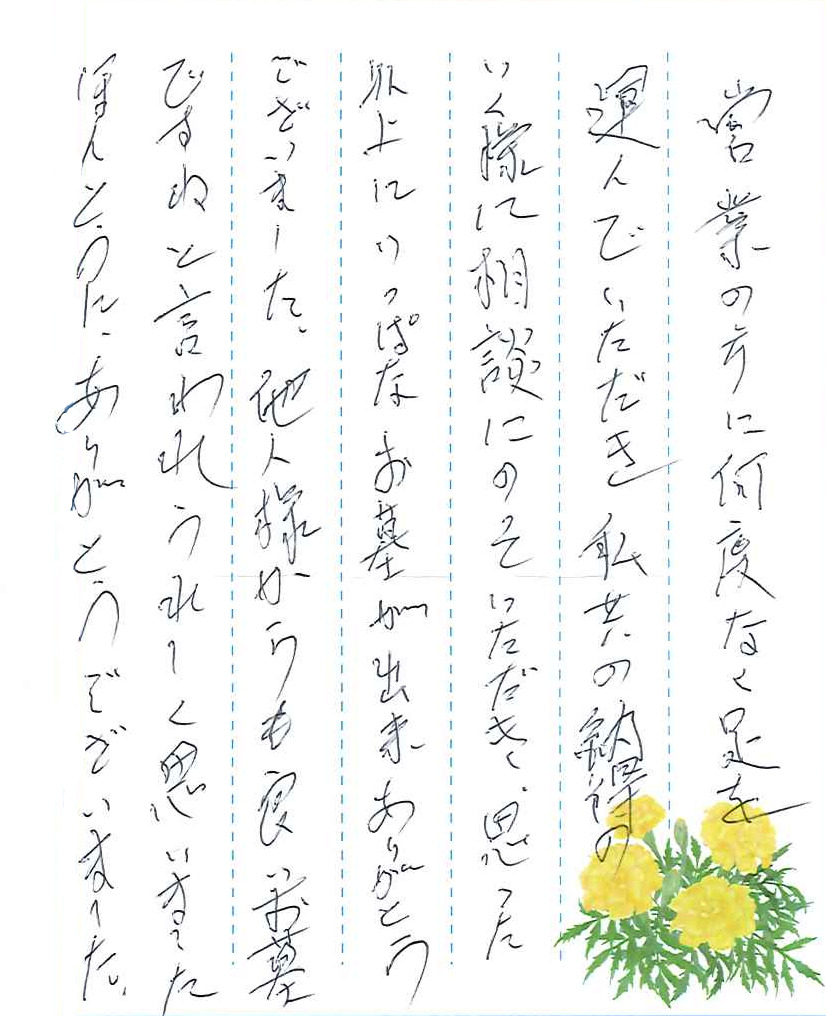 営業の方に何度なく足を
運んでいただき私共の納得の
いく様に相談にのていただき、思った
以上にりっぱなお墓が出来ありがとう
ございました、他人様からも良いお墓
ですねと言われうれしく思いました
ほんとうに、ありがとうございました。